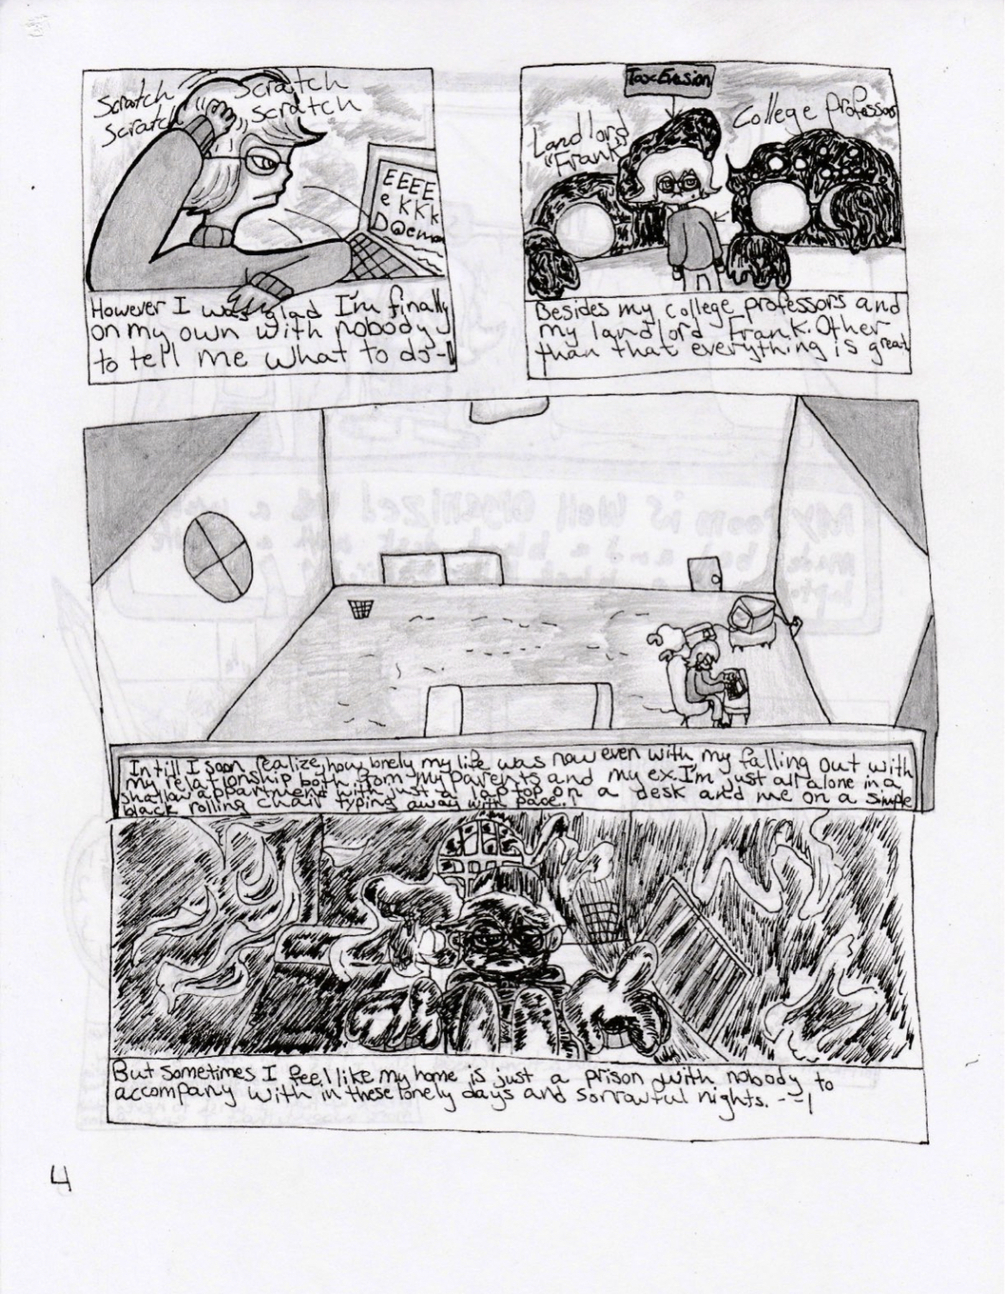 Scratch
Scratch
Scratch
Scratch
EEEE
e KKK
D@emon
However I was glad I'm finally
on my own with nobody
to tell me what to do-
Tax Evasion
Landlord
"Frank"
College professor
Besides my college professors and
my landlord Frank. Other
than that everything is great
Intill I soon realize how lonely my life was now even with my falling out with
my relationship both from my parents and my ex. I'm just all alone in a
shallow appartment with just a laptop on a desk and me on a simple
black rolling chair typing away with pace..
But sometimes I feel like my home is just a prison with nobody to
accompany with in these lonely days and sorrawful nights. -~
4